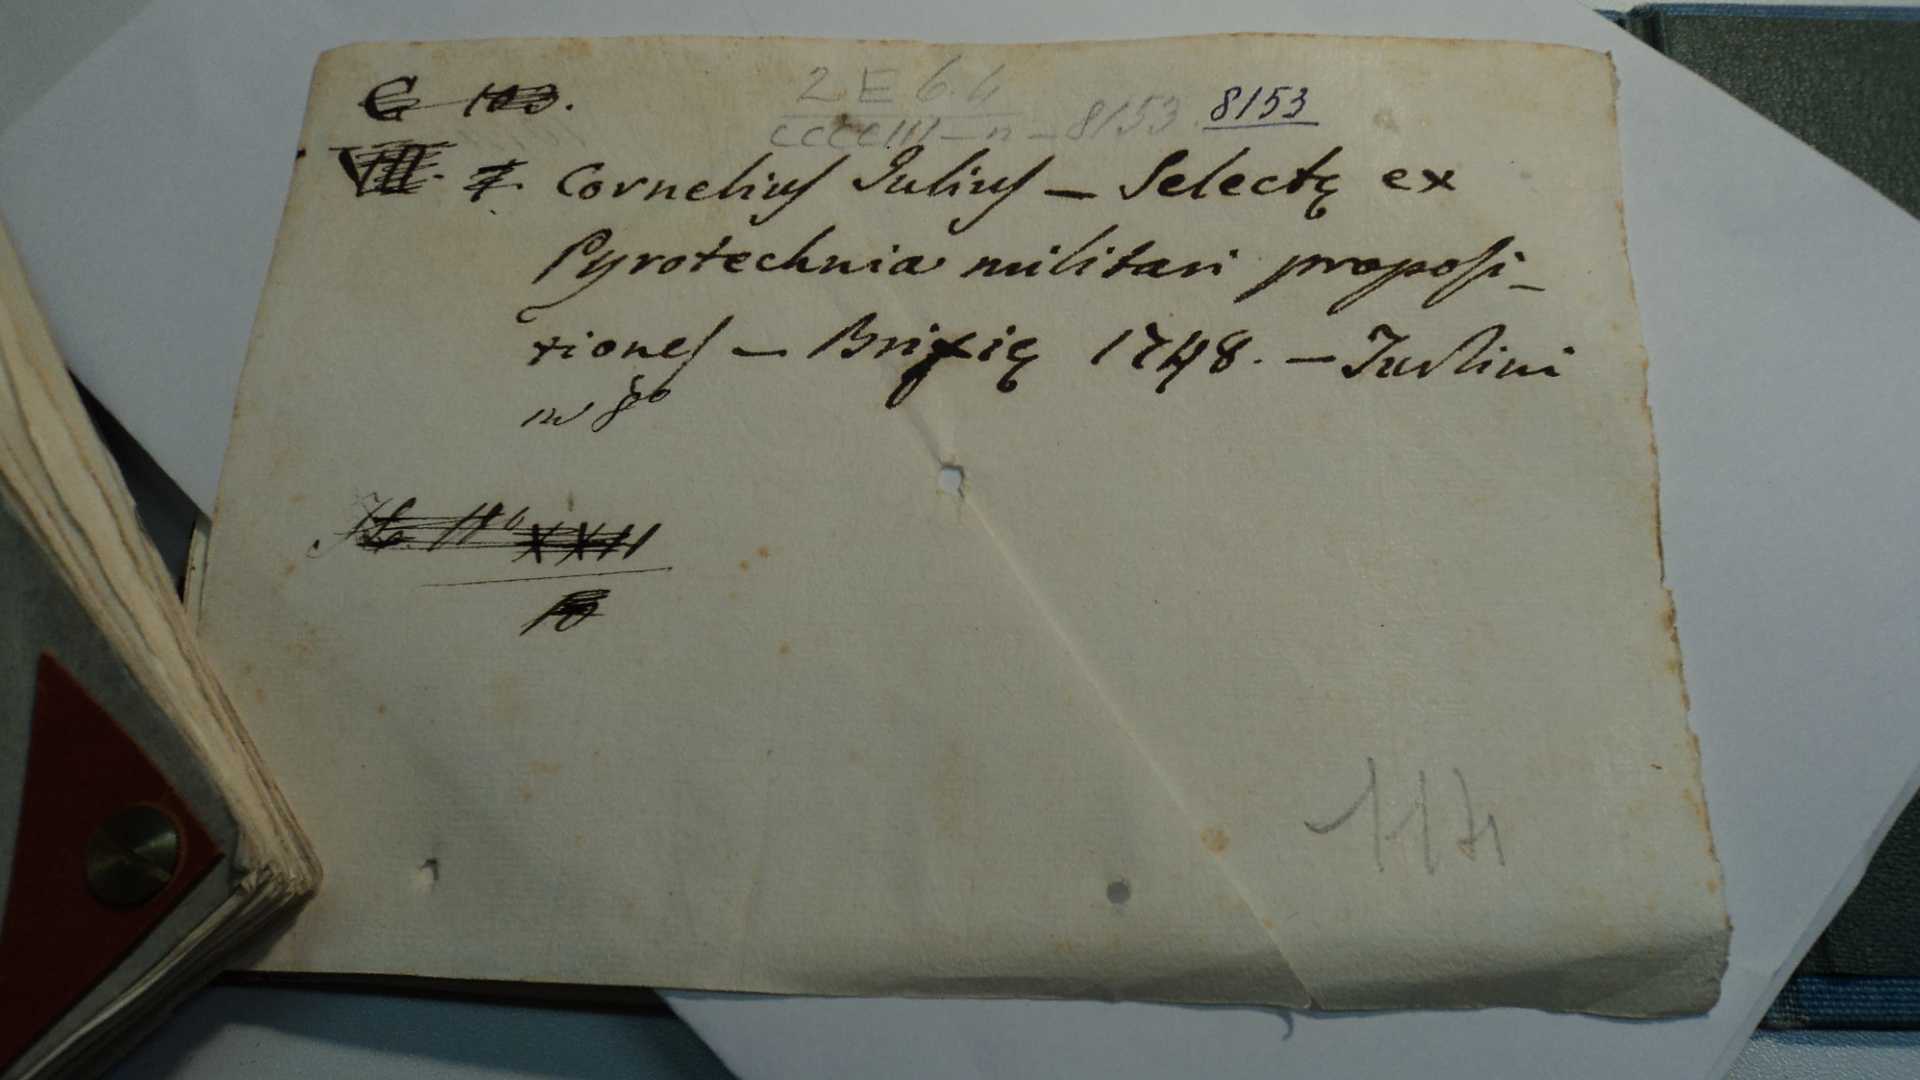 C 103.
2 E 6.4
CCCCIII – n – 8153. 8153
VIII. 7. Cornelius Julius – Selectę ex
Pyrotechnia militari proposi-
tiones – Brixię 1748. – Turlini
in 8º
XXII
10